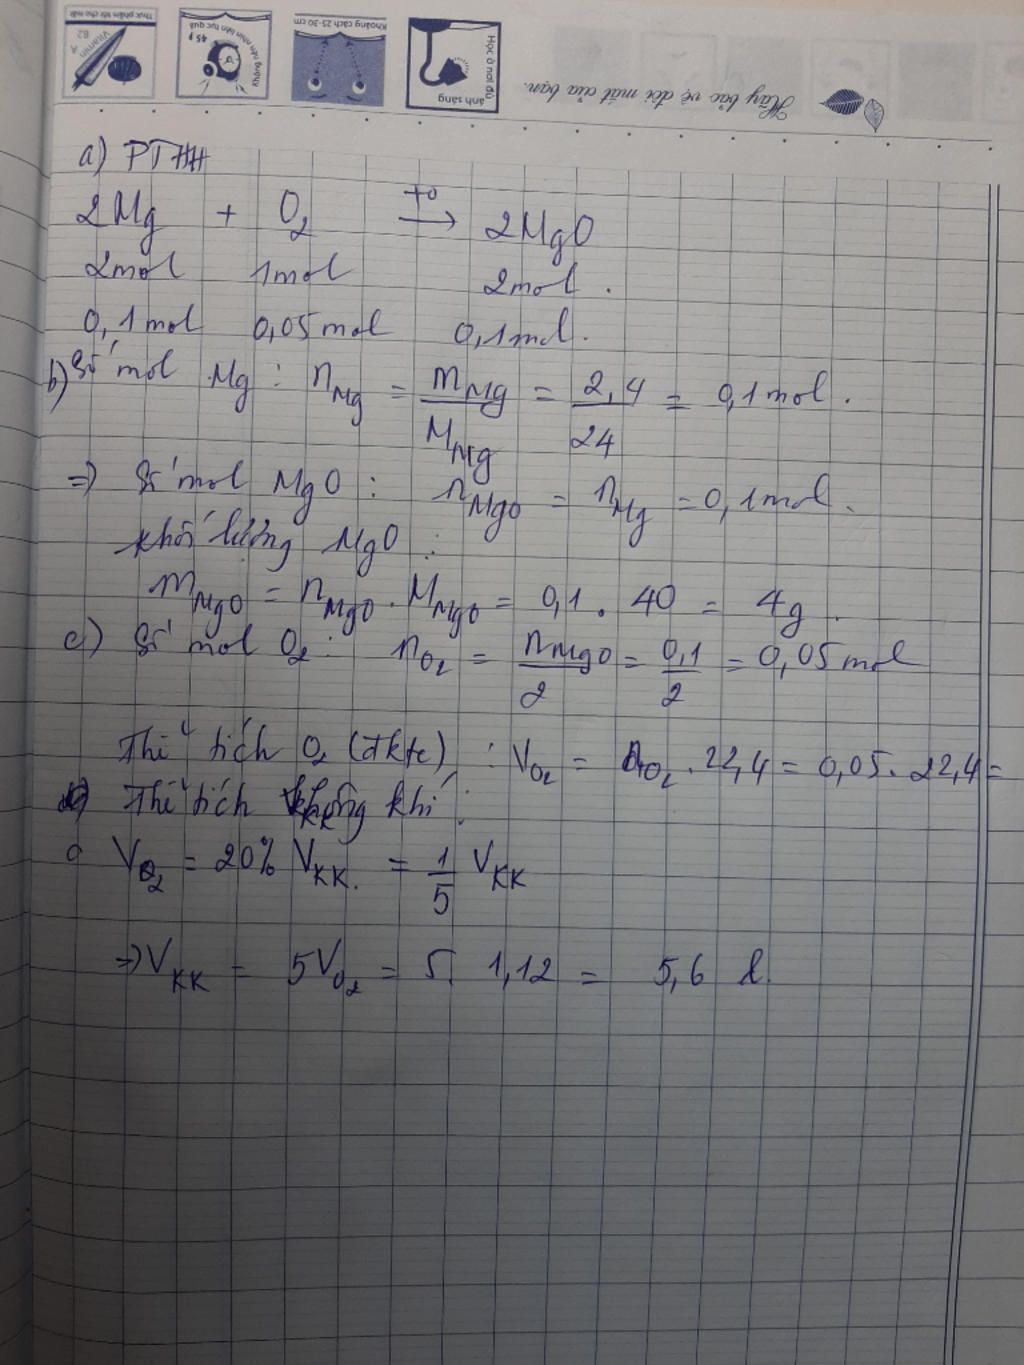 Thực phẩm tốt cho mắt
Vitamin A
B2
không nên nhìn liên tục quá
45 P
Khoảng cách 25-30 cm
Học ở nơi đủ
ánh sáng
Hãy bảo vệ đôi mắt của bạn.
a) PTHH
2Mg + O₂ →(t°) 2MgO
2mol 1mol 2mol.
0,1mol 0,05mol 0,1mol.
b) Số mol Mg : n_Mg = m_Mg/M_Mg = 2,4/24 = 0,1mol.
=) Số mol MgO : n_MgO = n_Mg = 0,1mol.
khối lượng MgO :
m_MgO = n_MgO . M_MgO = 0,1 . 40 = 4g.
c) Số mol O₂ : n_O₂ = n_MgO/2 = 0,1/2 = 0,05mol
Thể tích O₂ (đktc) : V_O₂ = n_O₂ . 22,4 = 0,05 . 22,4 =
Thể tích không khí :
V_O₂ = 20% V_KK. = 1/5 V_KK
=) V_KK = 5V_O₂ = 5. 1,12 = 5,6 l.